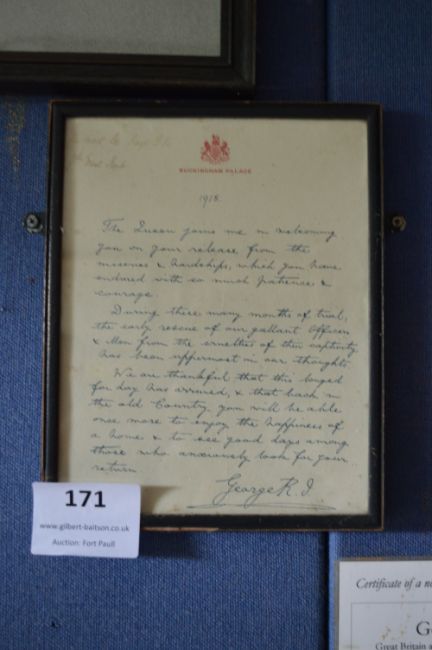 BUCKINGHAM PALACE
1918.
The Queen joins me in welcoming
you on your release from the
miseries & hardships, which you have
endured with so much patience &
courage.
During these many months of trial,
the early rescue of our gallant Officers
& Men from the cruelties of their captivity
has been uppermost in our thoughts.
We are thankful that this longed
for day has arrived, & that back in
the old Country you will be able
once more to enjoy the happiness of
a home & to see good days among
those who anxiously look for your
return.
George R.I.
171
www.gilbert-baitson.co.uk
Auction: Fort Paull
Certificate of a
G
Great Britain